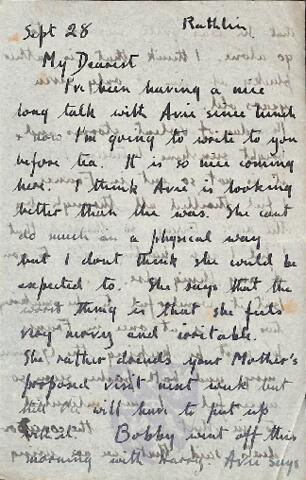 Sept 28 Rathlin
My Dearest
I've been having a nice
long talk with Avie since lunch
& now I'm going to write to you
before tea. It is so nice coming
here. I think Avie is looking
better than she was. She cant
do much in a physical way
but I dont think she would be
expected to. She says that the
worst thing is that she feels
very nervy and irritable.
She rather dreads your Mother's
proposed visit next week but
will have to put up
with it. Bobby went off this
morning with Harry. Avie says